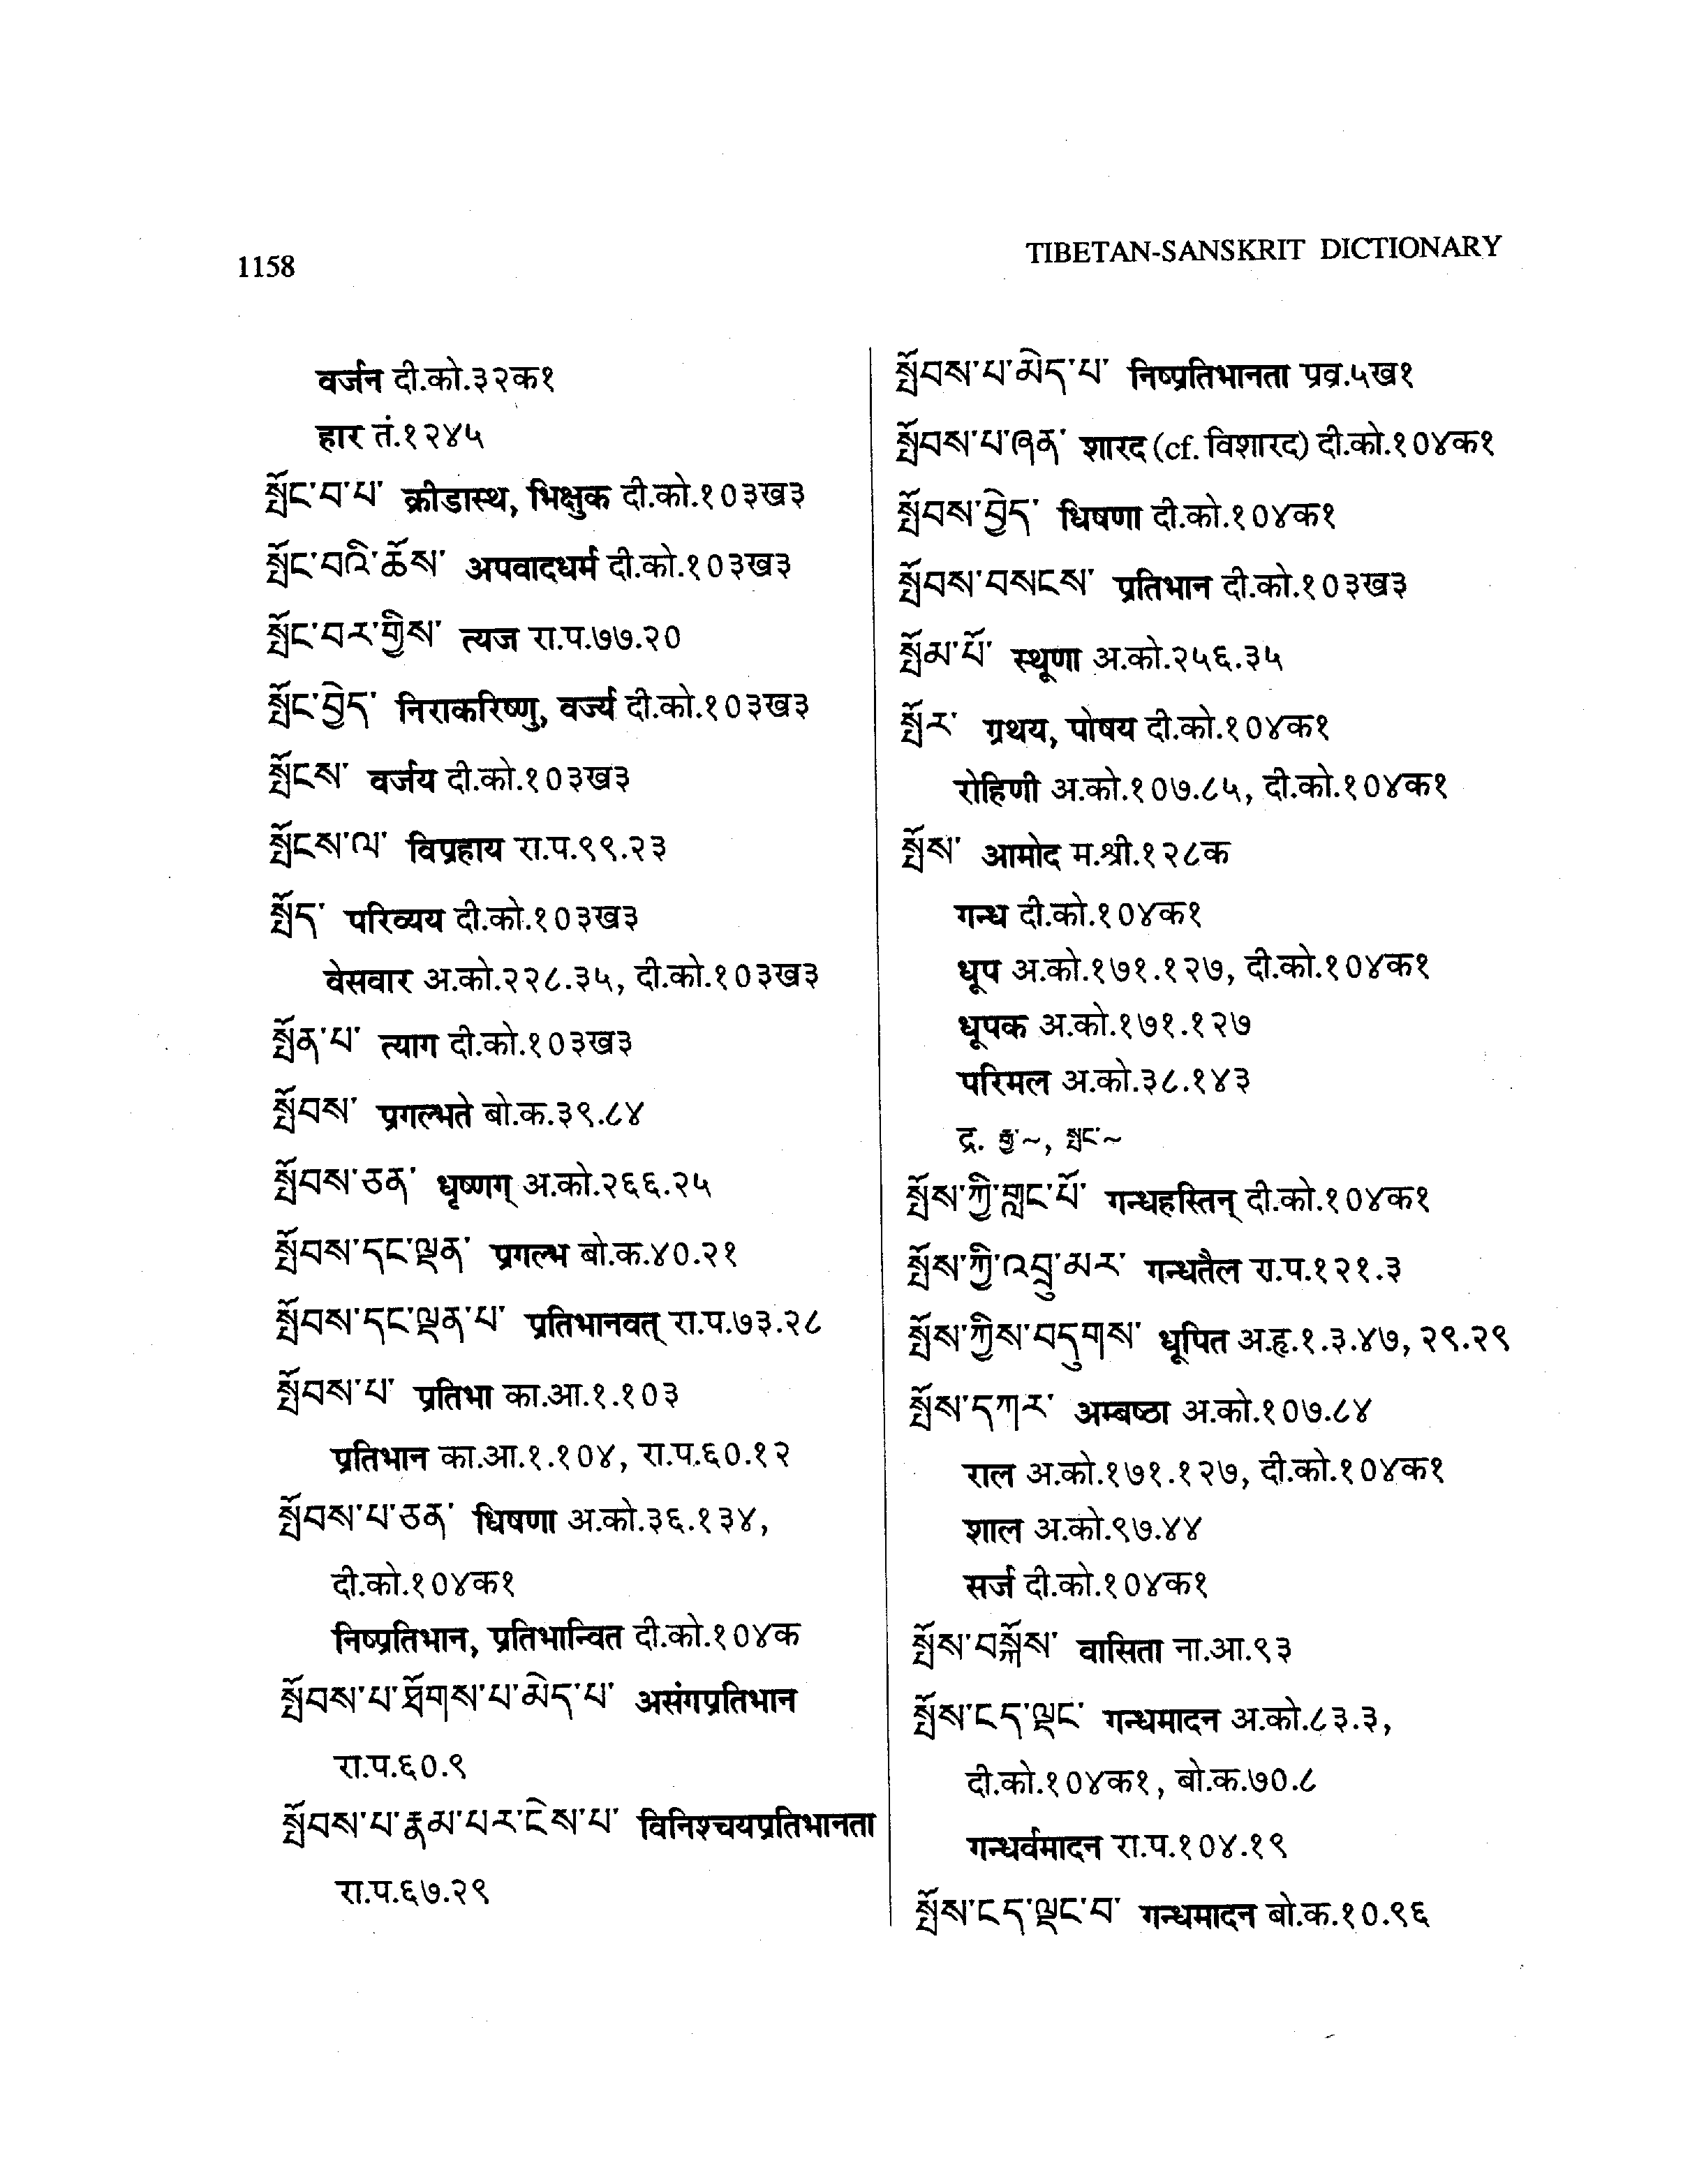 1158
TIBETAN-SANSKRIT DICTIONARY
वर्जन दी.को.३२क१
हार तं.१२४५
སྤོང་བ་པ་ क्रीडास्थ, भिक्षुक दी.को.१०३ख३
སྤོང་བའི་ཆོས་ अपवादधर्म दी.को.१०३ख३
སྤོང་བར་གྱིས་ त्यज रा.प.७७.२०
སྤོང་བྱེད་ निराकरिष्णु, वर्ज्य दी.को.१०३ख३
སྤོངས་ वर्जय दी.को.१०३ख३
སྤོངས་ལ་ विप्रहाय रा.प.९९.२३
སྤོད་ परिव्यय दी.को.१०३ख३
वेसवार अ.को.२२८.३५, दी.को.१०३ख३
སྤོན་པ་ त्याग दी.को.१०३ख३
སྤོབས་ प्रगल्भते बो.क.३९.८४
སྤོབས་ཅན་ धृष्णग् अ.को.२६६.२५
སྤོབས་དང་ལྡན་ प्रगल्भ बो.क.४०.२१
སྤོབས་དང་ལྡན་པ་ प्रतिभानवत् रा.प.७३.२८
སྤོབས་པ་ प्रतिभा का.आ.१.१०३
प्रतिभान का.आ.१.१०४, रा.प.६०.१२
སྤོབས་པ་ཅན་ धिषणा अ.को.३६.१३४,
दी.को.१०४क१
निष्प्रतिभान, प्रतिभान्वित दी.को.१०४क
སྤོབས་པ་ཐོགས་པ་མེད་པ་ असंगप्रतिभान
रा.प.६०.९
སྤོབས་པ་རྣམ་པར་ངེས་པ་ विनिश्चयप्रतिभानता
रा.प.६७.२९
སྤོབས་པ་མེད་པ་ निष्प्रतिभानता प्रव्र.५ख१
སྤོབས་པ་ཞན་ शारद (cf. विशारद) दी.को.१०४क१
སྤོབས་བྱེད་ धिषणा दी.को.१०४क१
སྤོབས་བསངས་ प्रतिभान दी.को.१०३ख३
སྤོམ་པོ་ स्थूणा अ.को.२५६.३५
སྤོར་ ग्रथय, पोषय दी.को.१०४क१
रोहिणी अ.को.१०७.८५, दी.को.१०४क१
སྤོས་ आमोद म.श्री.१२८क
गन्ध दी.को.१०४क१
धूप अ.को.१७१.१२७, दी.को.१०४क१
धूपक अ.को.१७१.१२७
परिमल अ.को.३८.१४३
द्र. ~, སྤང་~
སྤོས་ཀྱི་གླང་པོ་ गन्धहस्तिन् दी.को.१०४क१
སྤོས་ཀྱི་འབྲུ་མར་ गन्धतैल रा.प.१२१.३
སྤོས་ཀྱིས་བདུགས་ धूपित अ.हृ.१.३.४७, २९.२९
སྤོས་དཀར་ अम्बष्ठा अ.को.१०७.८४
राल अ.को.१७१.१२७, दी.को.१०४क१
शाल अ.को.९७.४४
सर्ज दी.को.१०४क१
སྤོས་བསྐོས་ वासिता ना.आ.९३
སྤོས་ངད་ལྡང་ गन्धमादन अ.को.८३.३,
दी.को.१०४क१, बो.क.७०.८
गन्धर्वमादन रा.प.१०४.१९
སྤོས་ངད་ལྡང་བ་ गन्धमादन बो.क.१०.९६